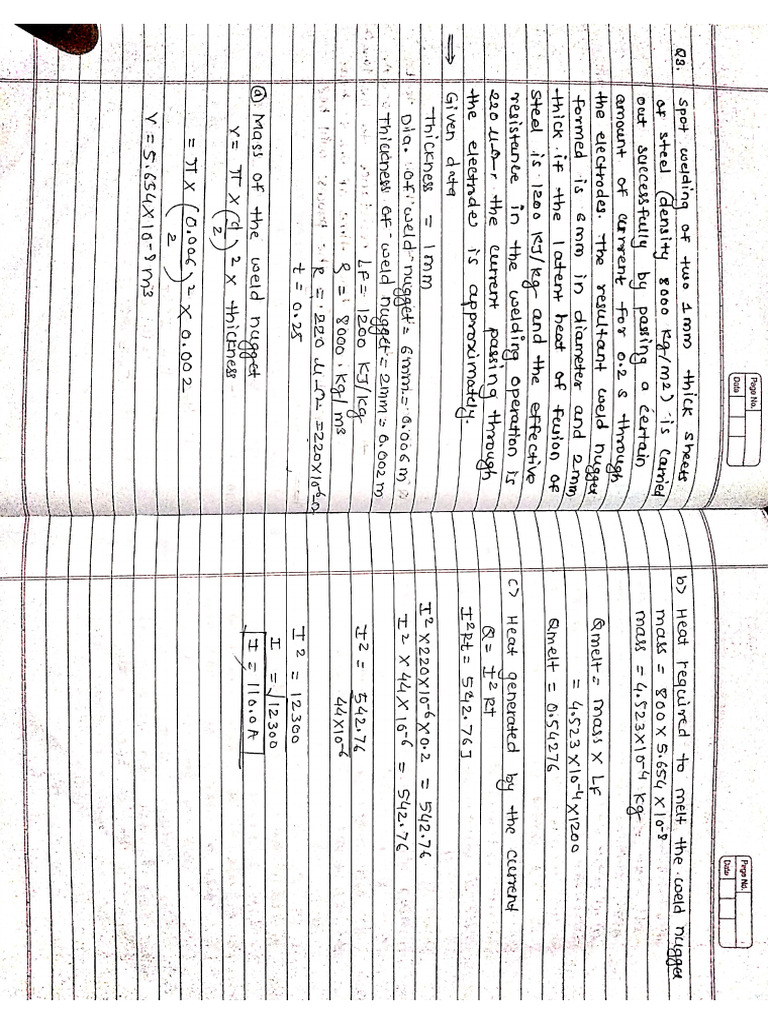 Page No.
Date
Q3. spot welding of two 1mm thick sheets
of steel (density 8000 kg/m2) is carried
out successfully by passing a certain
amount of current for 0.2 s through
the electrodes. The resultant weld nugget
formed is 6 mm in diameter and 2mm
thick if the latent heat of fusion of
steel is 1200 KJ/kg and the effective
resistance in the welding operation is
220 μΩ, the current passing through
the electrodes is approximately.
→ Given data
Thickness = 1mm
Dia. of weld nugget = 6mm = 0.006m
Thickness of weld nugget = 2mm = 0.002m
LF = 1200 KJ/kg
ρ = 8000 kg/m3
R = 220 μΩ = 220×10⁶Ω
t = 0.2s
ⓐ Mass of the weld nugget
V = π × (d/2)² × thickness
= π × (0.006/2)² × 0.002
V = 5.654×10⁻⁸ m3
Page No.
Date
b) Heat required to melt the weld nugget
mass = 800 × 5.654 × 10⁻⁸
mass = 4.523×10⁻⁴ kg
Qmelt = mass × LF
= 4.523×10⁻⁴×1200
Qmelt = 0.54276
c) Heat generated by the current
Q = I²Rt
I²Rt = 542.76J
I²×220×10⁻⁶×0.2 = 542.76
I² × 44×10⁻⁶ = 542.76
I² = 542.76/44×10⁻⁶
I² = 12300
I = √12300
I = 110.0A